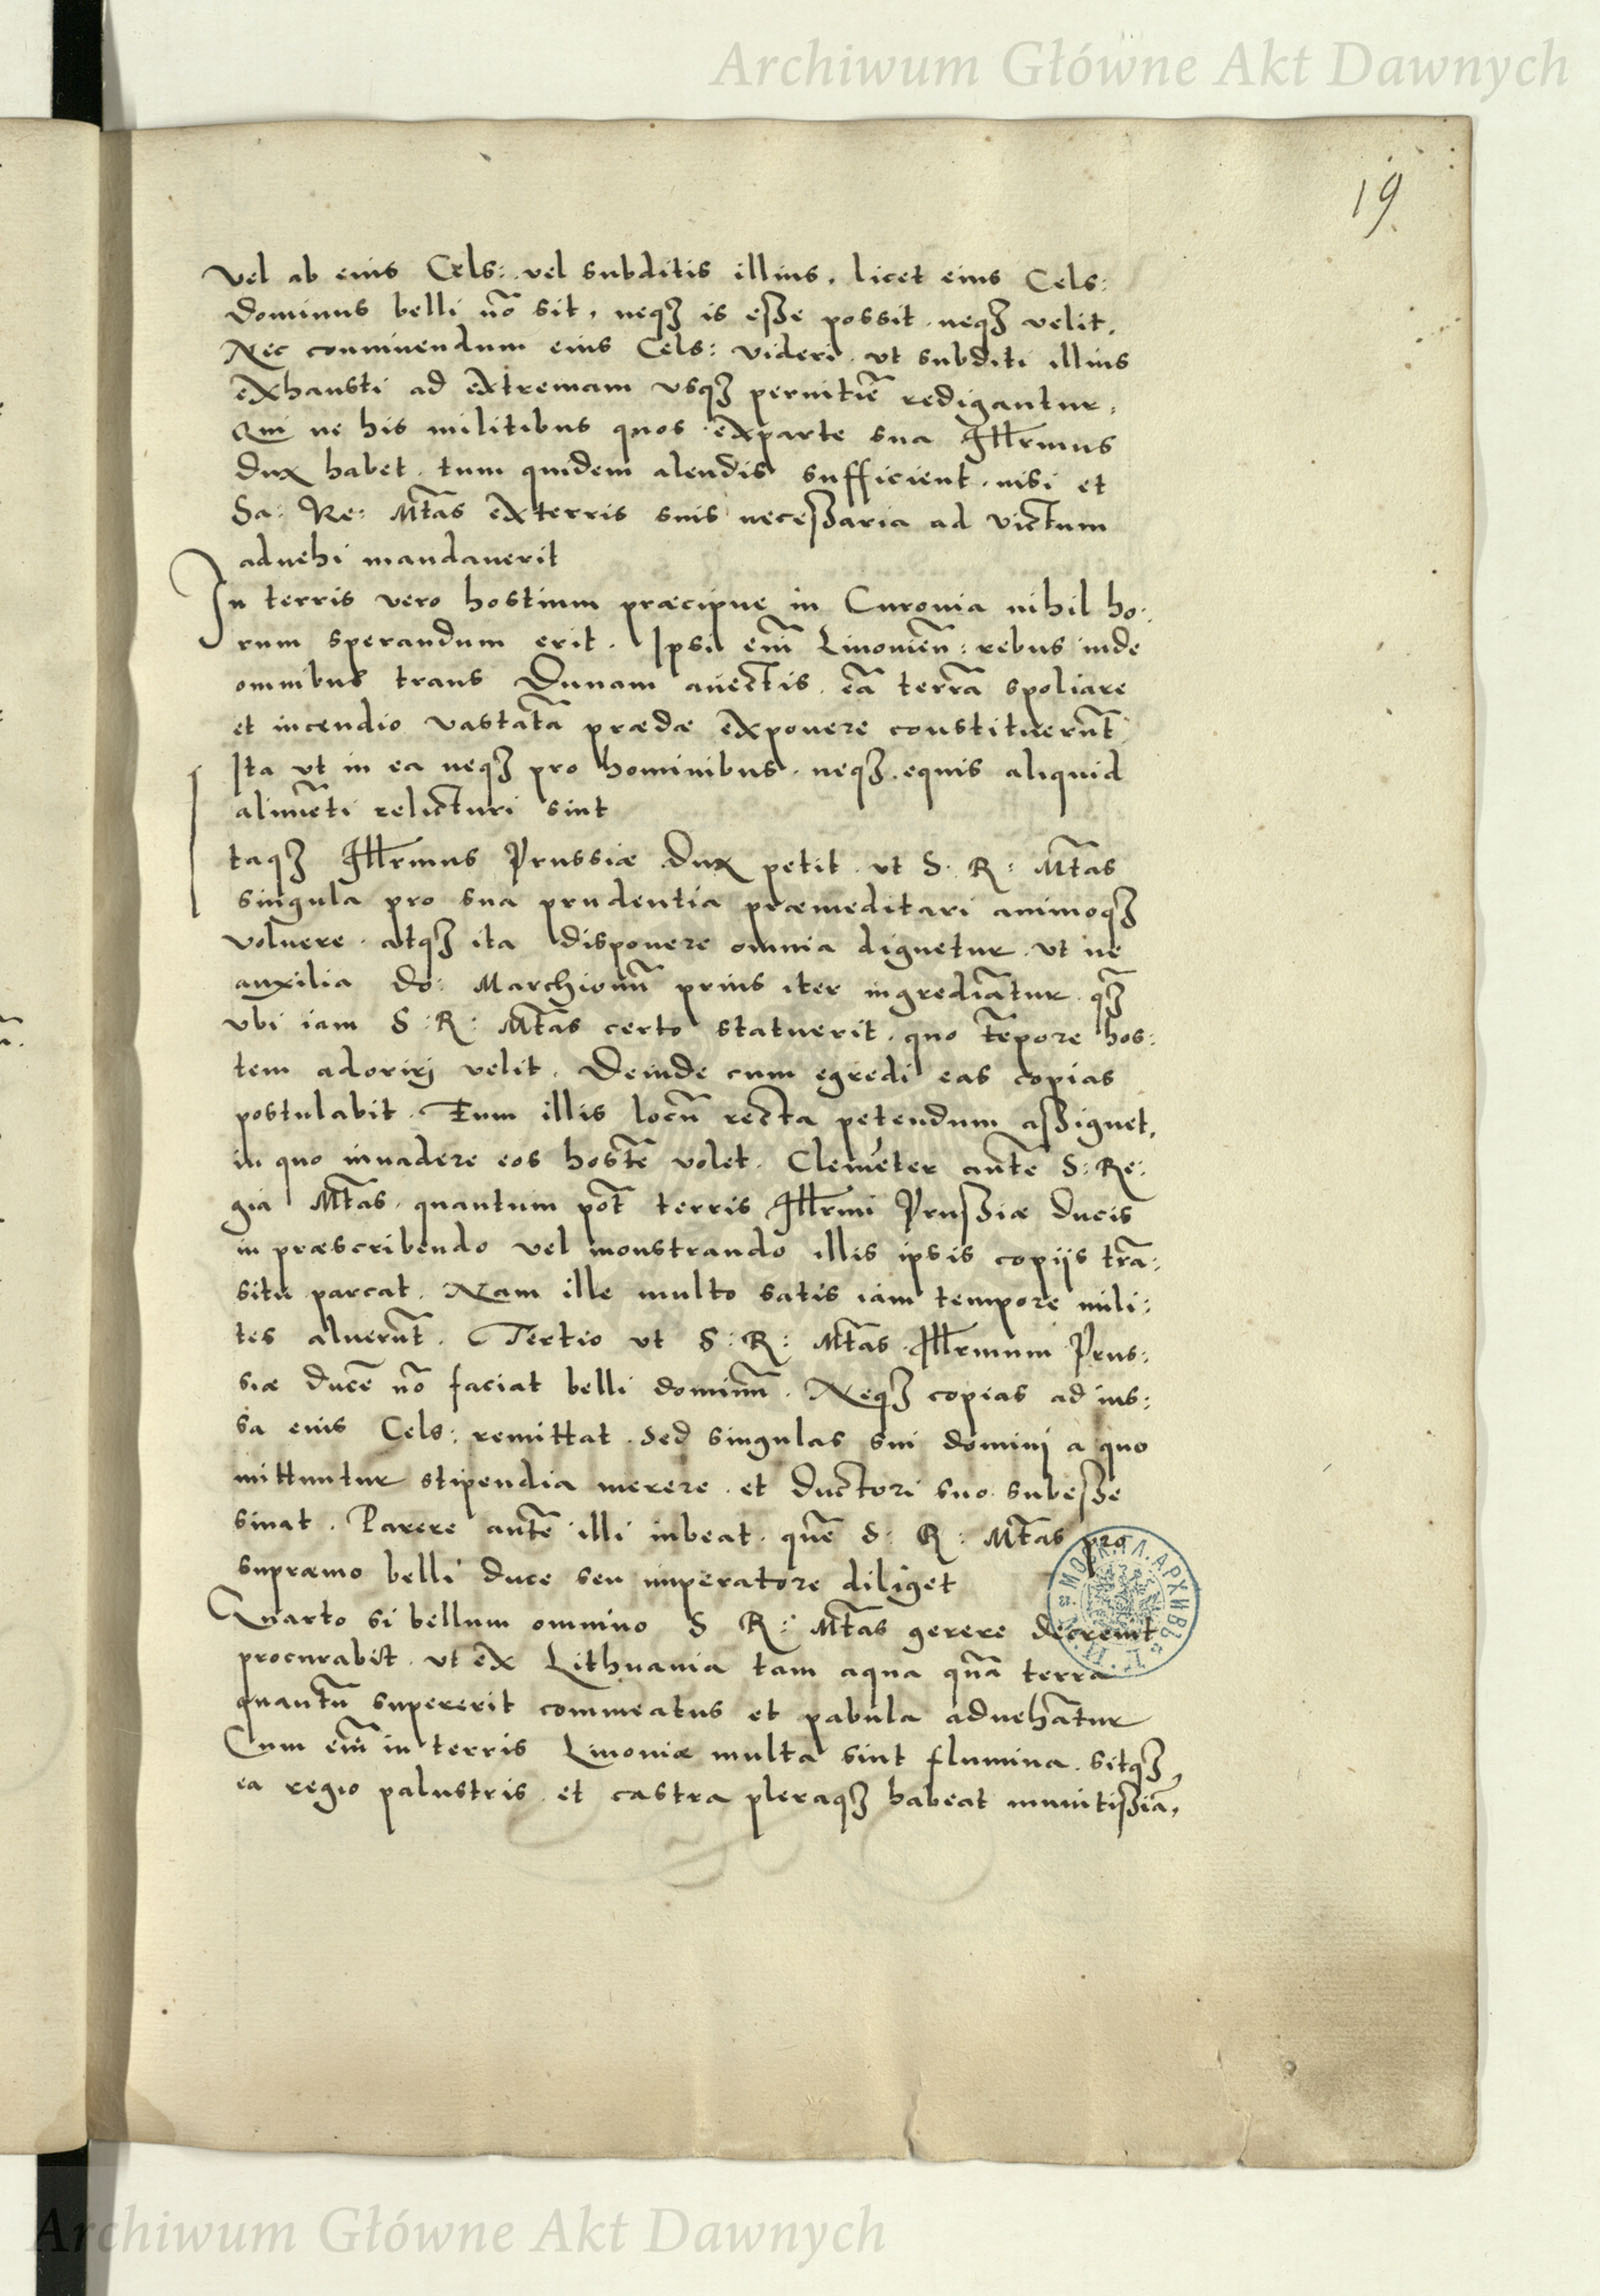 Archiwum Główne Akt Dawnych
19
Vel ab eius Cels: vel subditis illius, licet eius Cels:
dominus belli nō sit, neqꝫ is esse possit, neqꝫ velit,
Nec conniuendum eius Cels: videri, vt subditi illius
exhausti ad extremam vsqꝫ pernitiē redigantur,
Qui ne his militibus quos exparte sua Illrmus
dux habet, tum quidem alendis sufficient, nisi et
Sa: Re: Mtas exterris suis necessaria ad victum
aduehi mandauerit
In terris vero hostium præcipue in Curonia nihil ho:
rum sperandum erit. Ipsi em̄ Liuonien̄: rebus inde
omnibus trans Dunam auectis, eā terrā spoliare
et incendio vastatā prædæ exponere constituerūt
Ita vt in ea neqꝫ pro hominibus, neqꝫ equis aliquid
alimēti relicturi sint
Itaqꝫ Illrmus Prussiæ Dux petit, vt S. R: Mtas
singula pro sua prudentia præmeditari animoqꝫ
voluere, atqꝫ ita disponere omnia dignetur, vt ne
auxilia do: Marchionū prius iter ingrediātur, qꝫ̄
vbi iam S: R: Mtas certo statuerit, quo tēpore hos:
tem adorirj velit. Deinde cum egredi eas copias
postulabit. Tum illis locū recta petendum assignet,
in quo inuadere eos hostē volet. Clemēter autē S: Re:
gia Mtas, quantum pōt terris Illrmi Prussiæ Ducis
in præscribendo vel monstrando illis ipsis copijs trā:
situ parcat. Nam ille multo satis iam tempore mili:
tes aluerūt. Tertio vt S: R: Mtas Illrmum Prus:
siæ ducē nō faciat belli dominū. Neqꝫ copias ad ius:
sa eius Cels: remittat, sed singulas sui dominj a quo
mittuntur stipendia merere, et ductori suo subesse
sinat. Parere autē illi iubeat, quē S: R: Mtas pro
supræmo belli duce seu imperatore diliget
Quarto si bellum omnino S R: Mtas gerere decreuit
procurabit, vt ex Lithuania tam aqua quā terra
quantū supererit commeatus et pabula aduehātur
Cum em̄ in terris Liuoniæ multa sint flumina, sitqꝫ
ea regio palustris, et castra pleraqꝫ habeat munitissiā,
Archiwum Główne Akt Dawnych